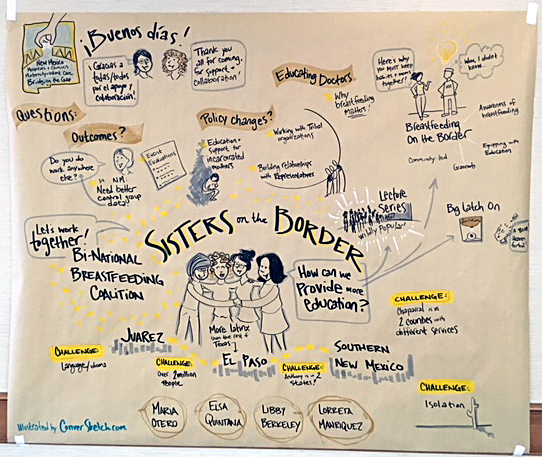 New Mexico
Bridging the Gap
¡Buenos días!
Gracias a
todas/todos
por el apoyo,
colaboración!
Thank you
all for coming,
for support +
collaboration!
Educating Doctors
Why
breastfeeding
Matters!
Here's why
you must keep
babies + moms
together!
Wow, I didn't
know...
Breastfeeding
On the Border
Awareness of
breastfeeding
Equipping with
Education
Community-led
Grassroots
Questions:
Outcomes?
Do you do
work anywhere
else?
In NM:
Need better
control group
data!
Event
Evaluations
Policy changes?
Education +
support for
incarcerated
mothers
Working with Tribal
organizations
Building relationships
with Representatives
Lecture
Series
wildly Popular!
Big Latch On
Let's work
together!
Bi-National
Breastfeeding
Coalition
Sisters on the Border
How can we
Provide more
education?
More latinx
than the rest of
Texas
Juarez
El Paso
Southern
New Mexico
Challenge:
Language/idioms
Challenge:
Over 2 million
People
Challenge:
Anthony is in 2
States!
Challenge:
Chaparral is in
2 counties with
different services
Challenge:
Isolation
Maria
Otero
Elsa
Quintana
Libby
Berkeley
Loretta
Manriquez
illustrated by ConverSketch.com